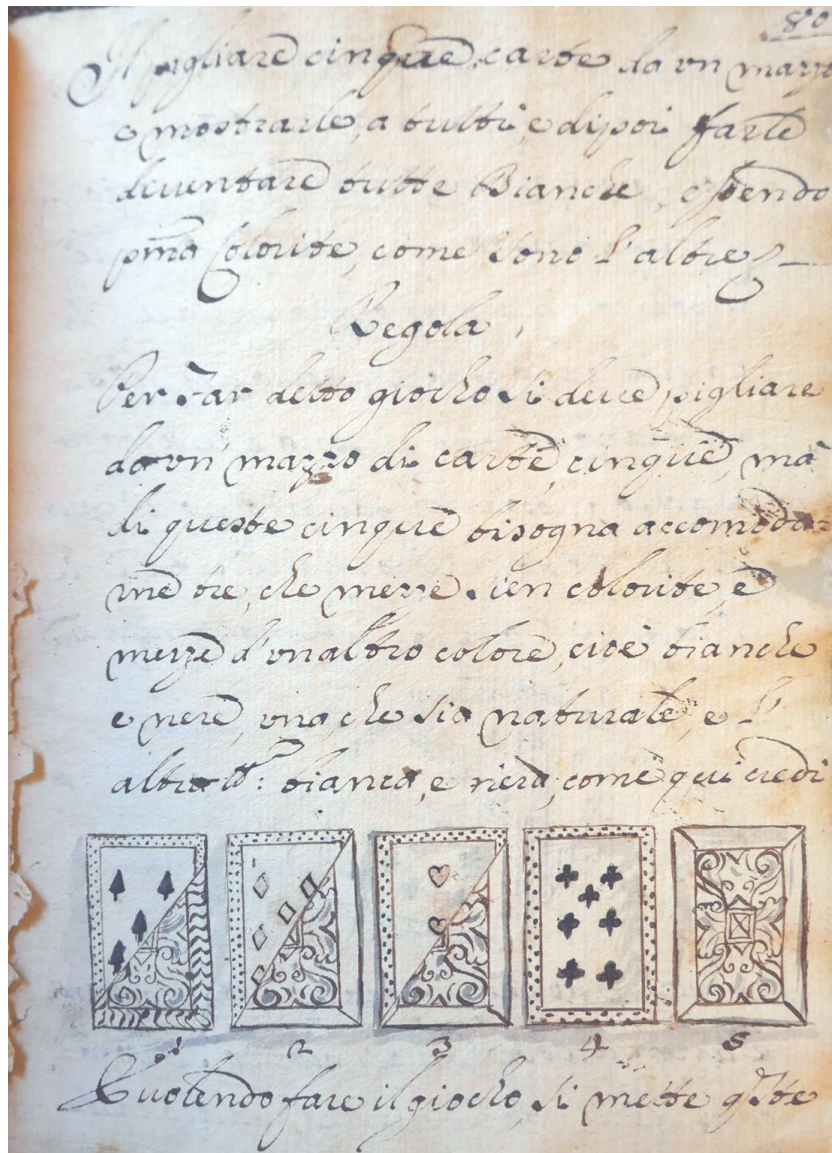 80
Il pigliare cinque carte da vn mazzo
e mostrarle, a tutti, e dipoi farle
diuentare tutte Bianche, essendo
pm̃a Colorite, come sono l'altre
Regola
Per far detto giocho si deue pigliare
da vn mazzo di carte, cinque, mà
di queste cinque bisogna accomoda=
rne tre, che mezze sien colorite, e
mezze d'vnaltro colore, cioè bianche
e nere, vna, che sia naturale, e l'
altra bianca, e nera, come qui uedi
1 2 3 4 5
Vuolendo fare il giocho, si mette